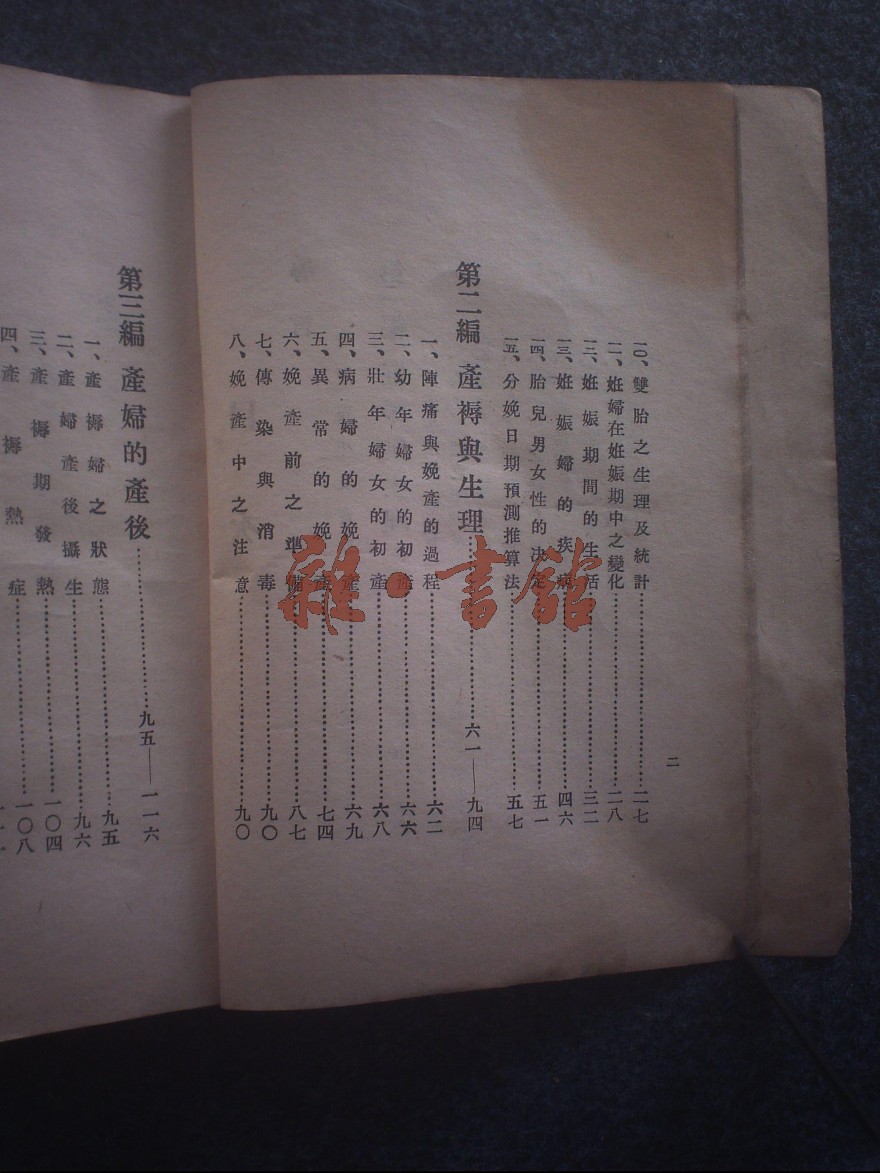 二
一〇、雙胎之生理及統計……二七
一一、姙婦在姙娠期中之變化……二八
一二、姙娠期間的生活……三二
一三、姙娠婦的疾病……四六
一四、胎兒男女性的決定……五一
一五、分娩日期預測推算法……五七
第二編 產褥與生理……六一——九四
一、陣痛與娩產的過程……六二
二、幼年婦女的初產……六六
三、壯年婦女的初產……六八
四、病婦的娩產……六九
五、異常的娩產……七四
六、娩產前之準備……八七
七、傳染與消毒……九〇
八、娩產中之注意……九〇
第三編 產婦的產後……九五——一一六
一、產褥婦之狀態……九五
二、產婦產後攝生……九六
三、產褥期發熱……一〇四
四、產褥熱症……一〇八
雜·書館